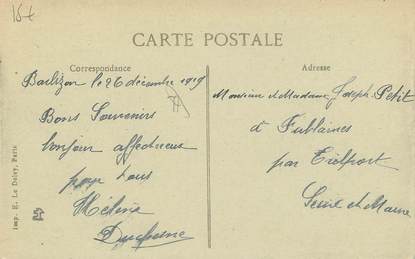 15+
CARTE POSTALE
Correspondance
Adresse
Barbizon le 26 décembre 1919
Bons Souvenirs
bonjour affectueux
pour tous
Hélène
Duchesne
Monsieur et Madame Joseph Petit
à Fublaines
par Trilport
Seine et Marne
Imp. E. Le Deley, Paris